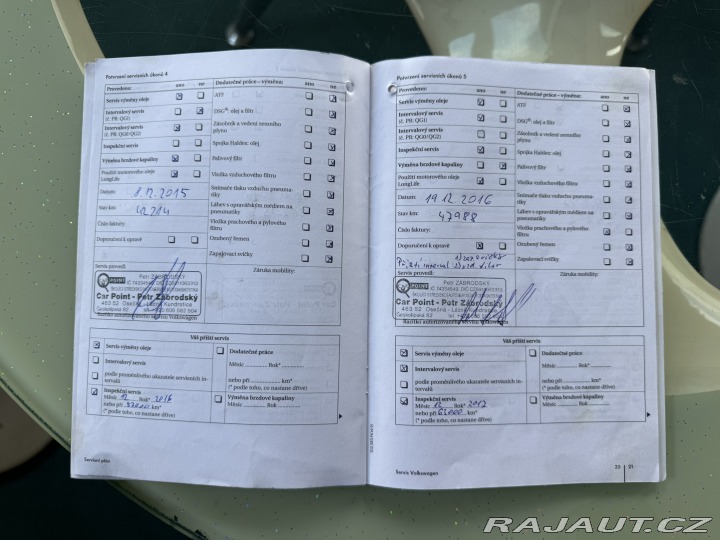 Potvrzení servisních úkonů 4
Provedeno: ano ne
Servis výměny oleje
Intervalový servis
(č. PR: QG1)
Intervalový servis
(č. PR: QG0/QG2)
Inspekční servis
Výměna brzdové kapaliny
Použití motorového oleje
LongLife
Datum: 8.12.2015
Stav km:
Číslo faktury:
Doporučení k opravě
Servis provedl:
Dodatečné práce – výměna: ano ne
ATF
DSG®: olej a filtr
Zásobník a vedení zemního
plynu
Spojka Haldex: olej
Palivový filtr
Vložka vzduchového filtru
Snímače tlaku vzduchu pneuma-
tiky
Láhev s opravářským médiem na
pneumatiky
Vložka prachového a pylového
filtru
Ozubený řemen
Zapalovací svíčky
Záruka mobility:
POINT
Petr ZÁBRODSKÝ
Car Point - Petr Zábrodský
463 52 Osečná - Lázně Kundratice
Razítko autorizovaného servisu Volkswagen
Váš příští servis
Servis výměny oleje
Intervalový servis
podle proměnlivého ukazatele servisních in-
tervalů
Inspekční servis
Měsíc 12 Rok* 2016
nebo při km*
(* podle toho, co nastane dříve)
Dodatečné práce
Měsíc Rok*
nebo při km*
(* podle toho, co nastane dříve)
Výměna brzdové kapaliny
Měsíc Rok
Servisní plán
Potvrzení servisních úkonů 5
Provedeno: ano ne
Servis výměny oleje
Intervalový servis
(č. PR: QG1)
Intervalový servis
(č. PR: QG0/QG2)
Inspekční servis
Výměna brzdové kapaliny
Použití motorového oleje
LongLife
Datum: 19.12.2016
Stav km: 47988
Číslo faktury:
Doporučení k opravě
Servis provedl:
Dodatečné práce – výměna: ano ne
ATF
DSG®: olej a filtr
Zásobník a vedení zemního
plynu
Spojka Haldex: olej
Palivový filtr
Vložka vzduchového filtru
Snímače tlaku vzduchu pneuma-
tiky
Láhev s opravářským médiem na
pneumatiky
Vložka prachového a pylového
filtru
Ozubený řemen
Zapalovací svíčky
Záruka mobility:
POINT
Petr ZÁBRODSKÝ
Car Point - Petr Zábrodský
463 52 Osečná - Lázně Kundratice
Razítko autorizovaného servisu Volkswagen
Váš příští servis
Servis výměny oleje
Intervalový servis
podle proměnlivého ukazatele servisních in-
tervalů
Inspekční servis
Měsíc 12 Rok* 2017
nebo při km*
(* podle toho, co nastane dříve)
Dodatečné práce
Měsíc Rok*
nebo při km*
(* podle toho, co nastane dříve)
Výměna brzdové kapaliny
Měsíc Rok
Servis Volkswagen
20 21
RAJAUT.CZ